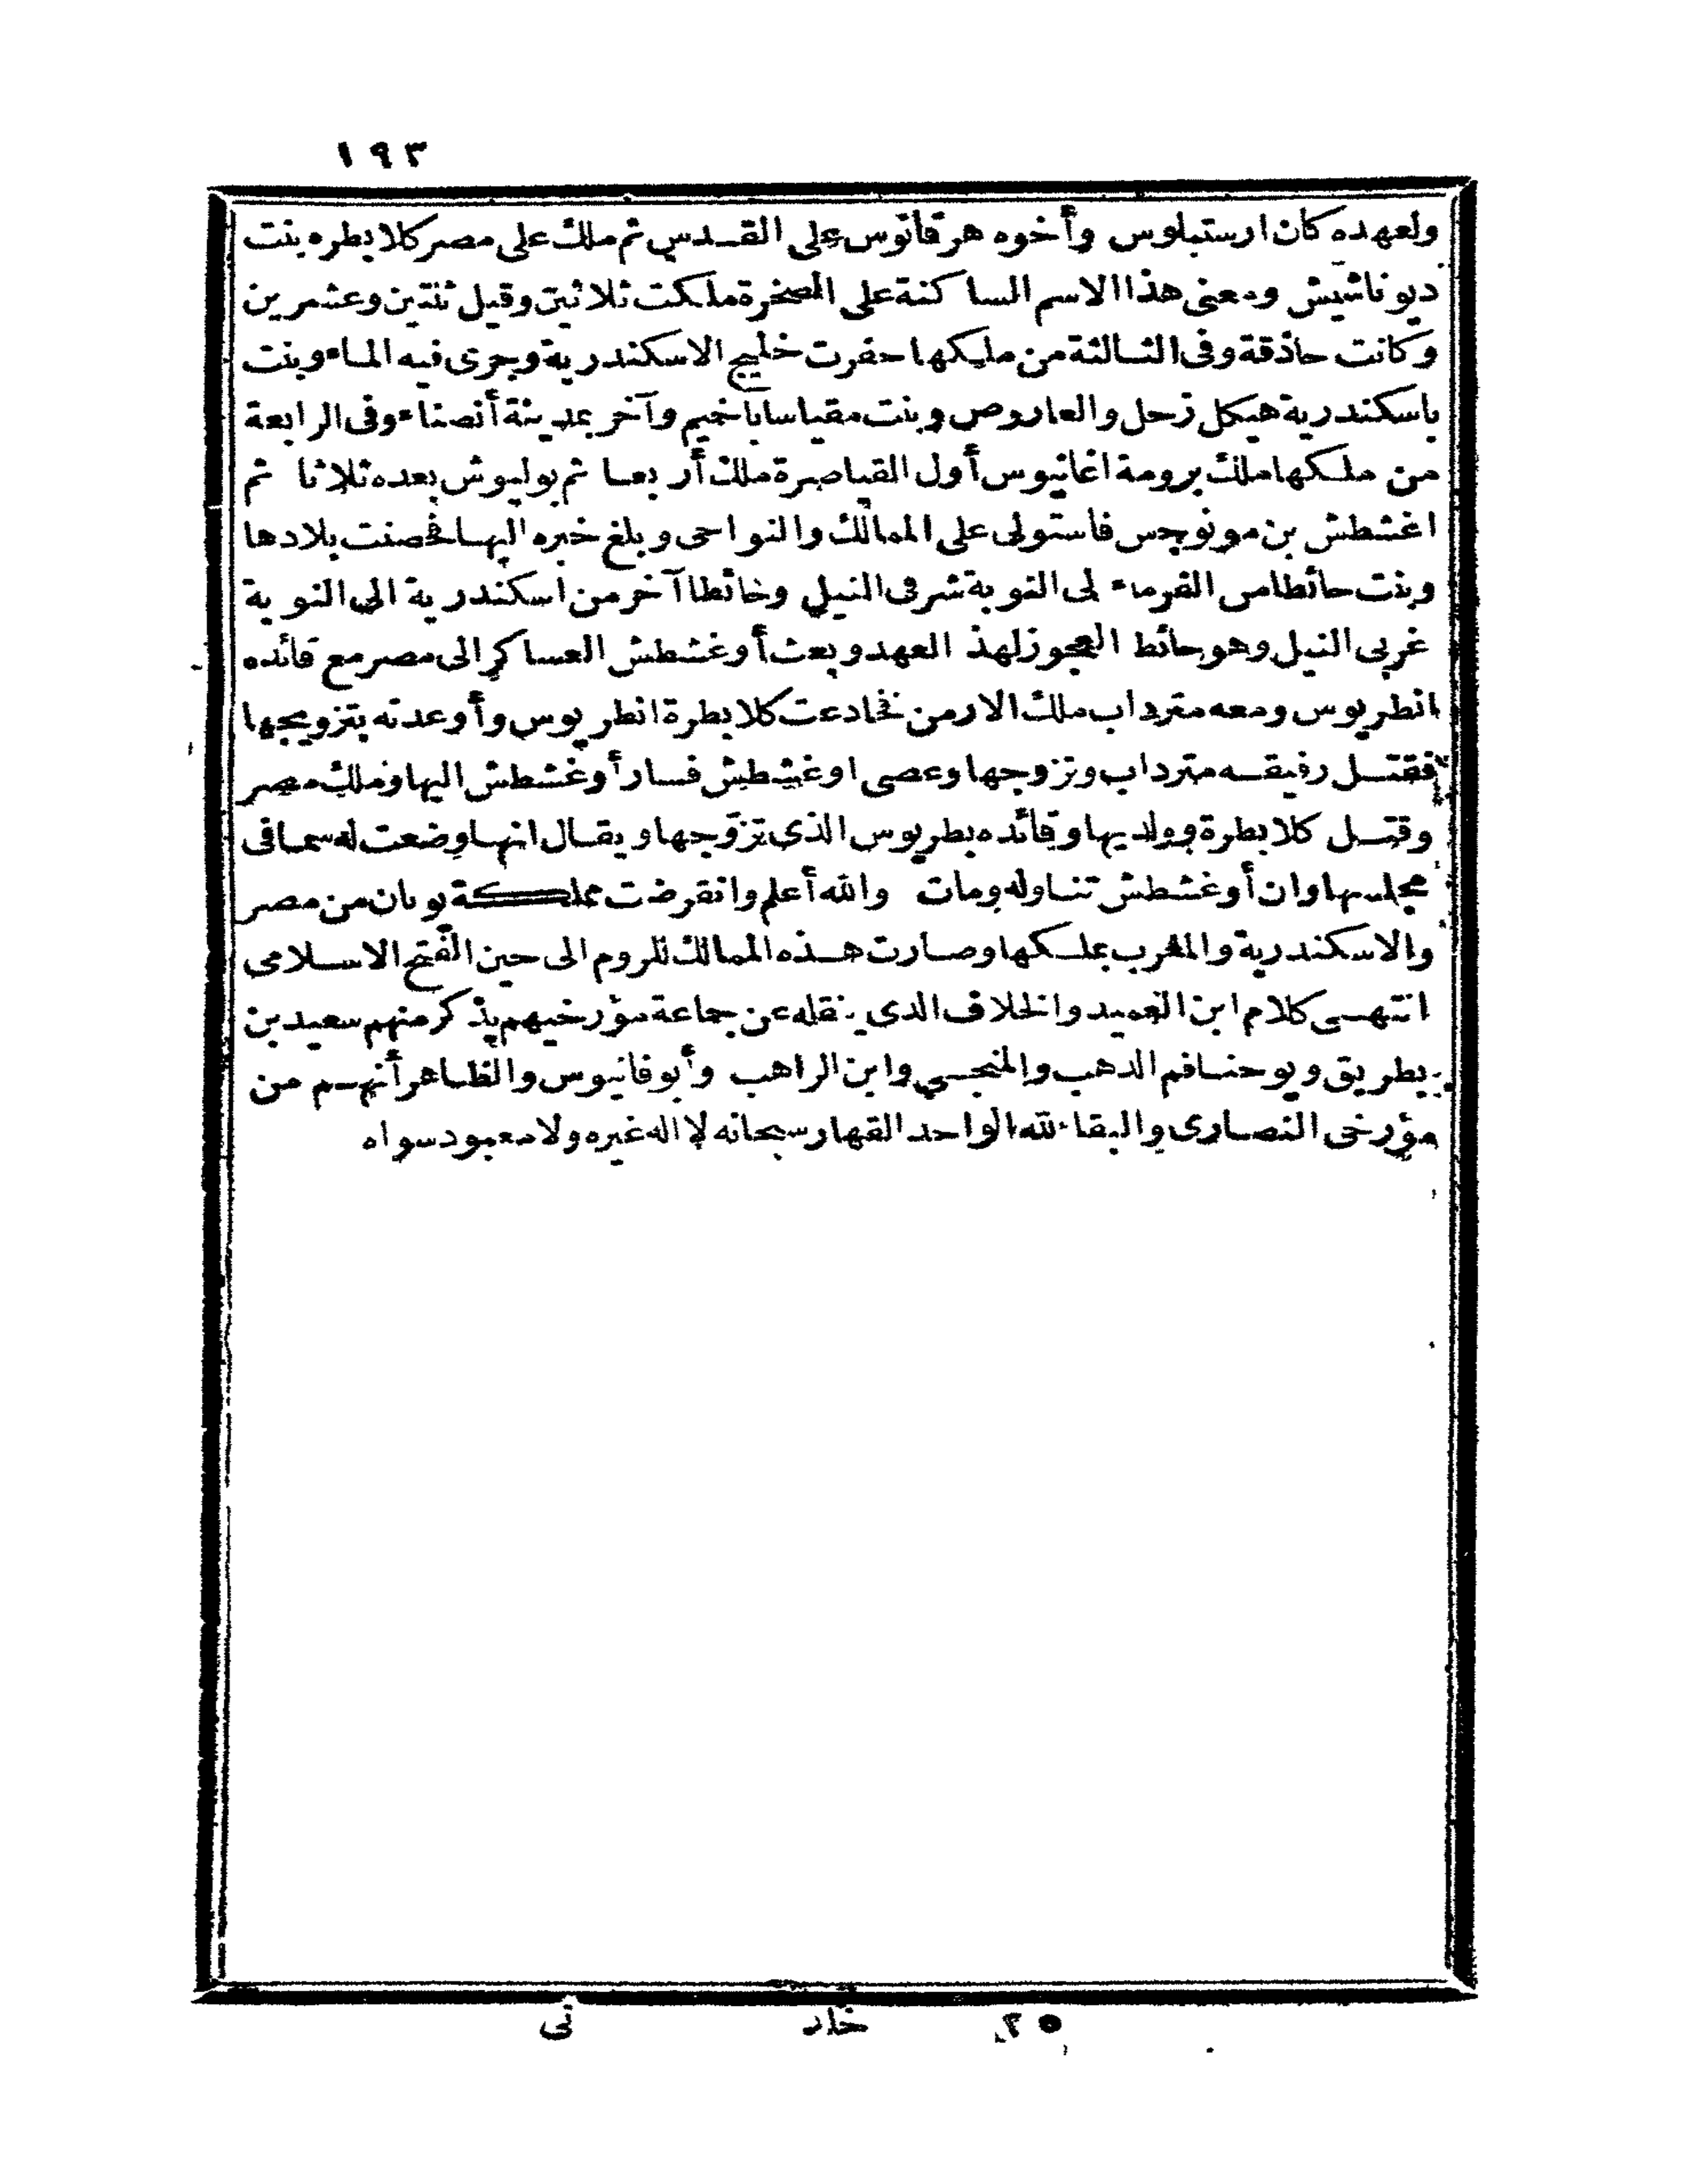 ١٩٣
ولعهده كان ارستبلوس وأخوه هرقانوس على القدس ثم ملك على مصر كلابطره بنت
ديوناشيش ومعنى هذا الاسم الساكنة على الصخرة ملكت ثلاثين وقيل ثنتين وعشرين
وكانت حاذقة وفى الثالثة من ملكها حفرت خليج الاسكندرية وجرى فيه الماء وبنت
باسكندرية هيكل زحل والعاروص وبنت مقياسا باخيم وآخر بمدينة أنصناء وفى الرابعة
من ملكها ملك برومة اغانيوس أول القياصرة ملك أربعا ثم بوليوش بعده ثلاثا ثم
اغشطش بن مونوجس فاستولى على الممالك والنواحى وبلغ خبره اليها فحصنت بلادها
وبنت حائطا من الفرماء لى النوبة شرقى النيل وحائطا آخر من اسكندرية الى النوبة
غربى النيل وهو حائط العجوز لهذ العهد وبعث أوغشطش العساكر الى مصر مع قائده
انطريوس ومعه مترداب ملك الارمن فخادعت كلابطرة انطريوس وأوعدته بتزويجها
فقتل رفيقه مترداب وتزوجها وعصى اوغشطش فسار أوغشطش اليها وملك مصر
وقتل كلابطرة وولديها وقائده بطريوس الذى تزوجها ويقال انها وضعت له سما فى
مجلسها وان أوغشطش تناوله ومات والله أعلم وانقرضت مملكة يونان من مصر
والاسكندرية والمغرب بملكها وصارت هذه الممالك للروم الى حين الفتح الاسلامى
انتهى كلام ابن العميد والخلاف الذى ينقله عن جماعة مؤرخيهم يذكر منهم سعيد بن
بطريق ويوحنا فم الذهب والمنجبى وابن الراهب وأبوفانيوس والظاهر أنهم من
مؤرخى النصارى والبقاء لله الواحد القهار سبحانه لا اله غيره ولا معبود سواه
٢٥ خلد نى